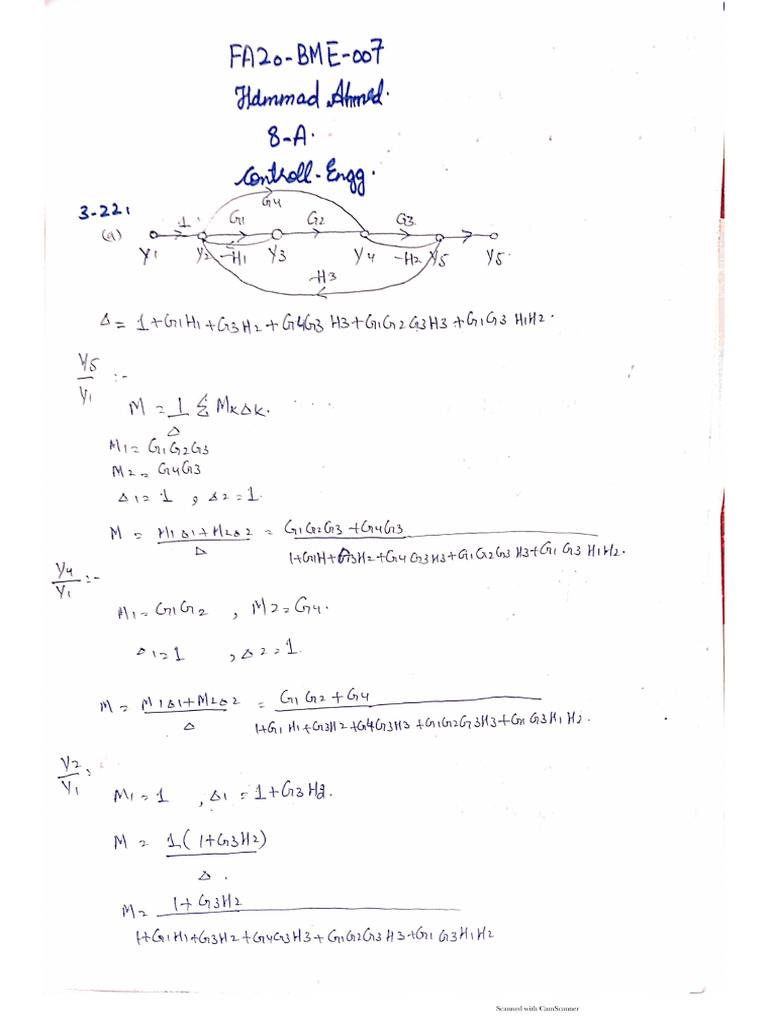 FA20-BME-007
Hammad Ahmed.
8-A.
Controll-Engg.
3-22:
G4
(a) 1 G1 G2 G3
Y1 Y2 -H1 Y3 Y4 -H2 Y5 Y5.
-H3
Δ = 1+G1H1+G3H2+G4G3 H3+G1G2G3H3+G1G3 H1H2.
Y5/Y1 :-
M = 1/Δ Σ MkΔk.
M1 = G1G2G3
M2 = G4G3
Δ1 = 1 , Δ2 = 1.
M = M1Δ1+M2Δ2/Δ = G1G2G3+G4G3/1+G1H+G3H2+G4G3H3+G1G2G3H3+G1G3H1H2.
Y4/Y1 :-
M1 = G1G2 , M2 = G4.
Δ1 = 1 , Δ2 = 1.
M = M1Δ1+M2Δ2/Δ = G1G2+G4/1+G1H1+G3H2+G4G3H3+G1G2G3H3+G1G3H1H2.
Y2/Y1 :
M1 = 1 , Δ1 = 1+G3H2.
M = 1(1+G3H2)/Δ.
M = 1+G3H2/1+G1H1+G3H2+G4G3H3+G1G2G3H3+G1G3H1H2
Scanned with CamScanner